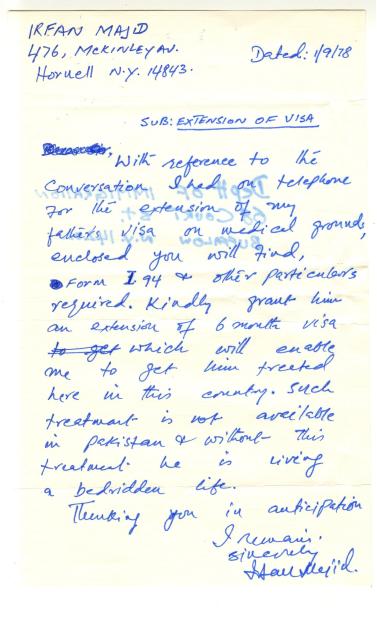 IRFAN MAJID
476, MCKINLEY AV.
Hornell N.Y. 14843.
Dated: 1/9/78
SUB: EXTENSION OF VISA
With reference to the
Conversation I had on telephone
For the extension of my
father's visa on medical grounds,
enclosed you will find,
Form I 94 & other particulars
required. Kindly grant him
an extension of 6 month visa
to get which will enable
me to get him treated
here in this country. Such
treatment is not available
in Pakistan & without this
treatment he is living
a bedridden life.
Thanking you in anticipation
I remain.
Sincerely
Irfan Majid.